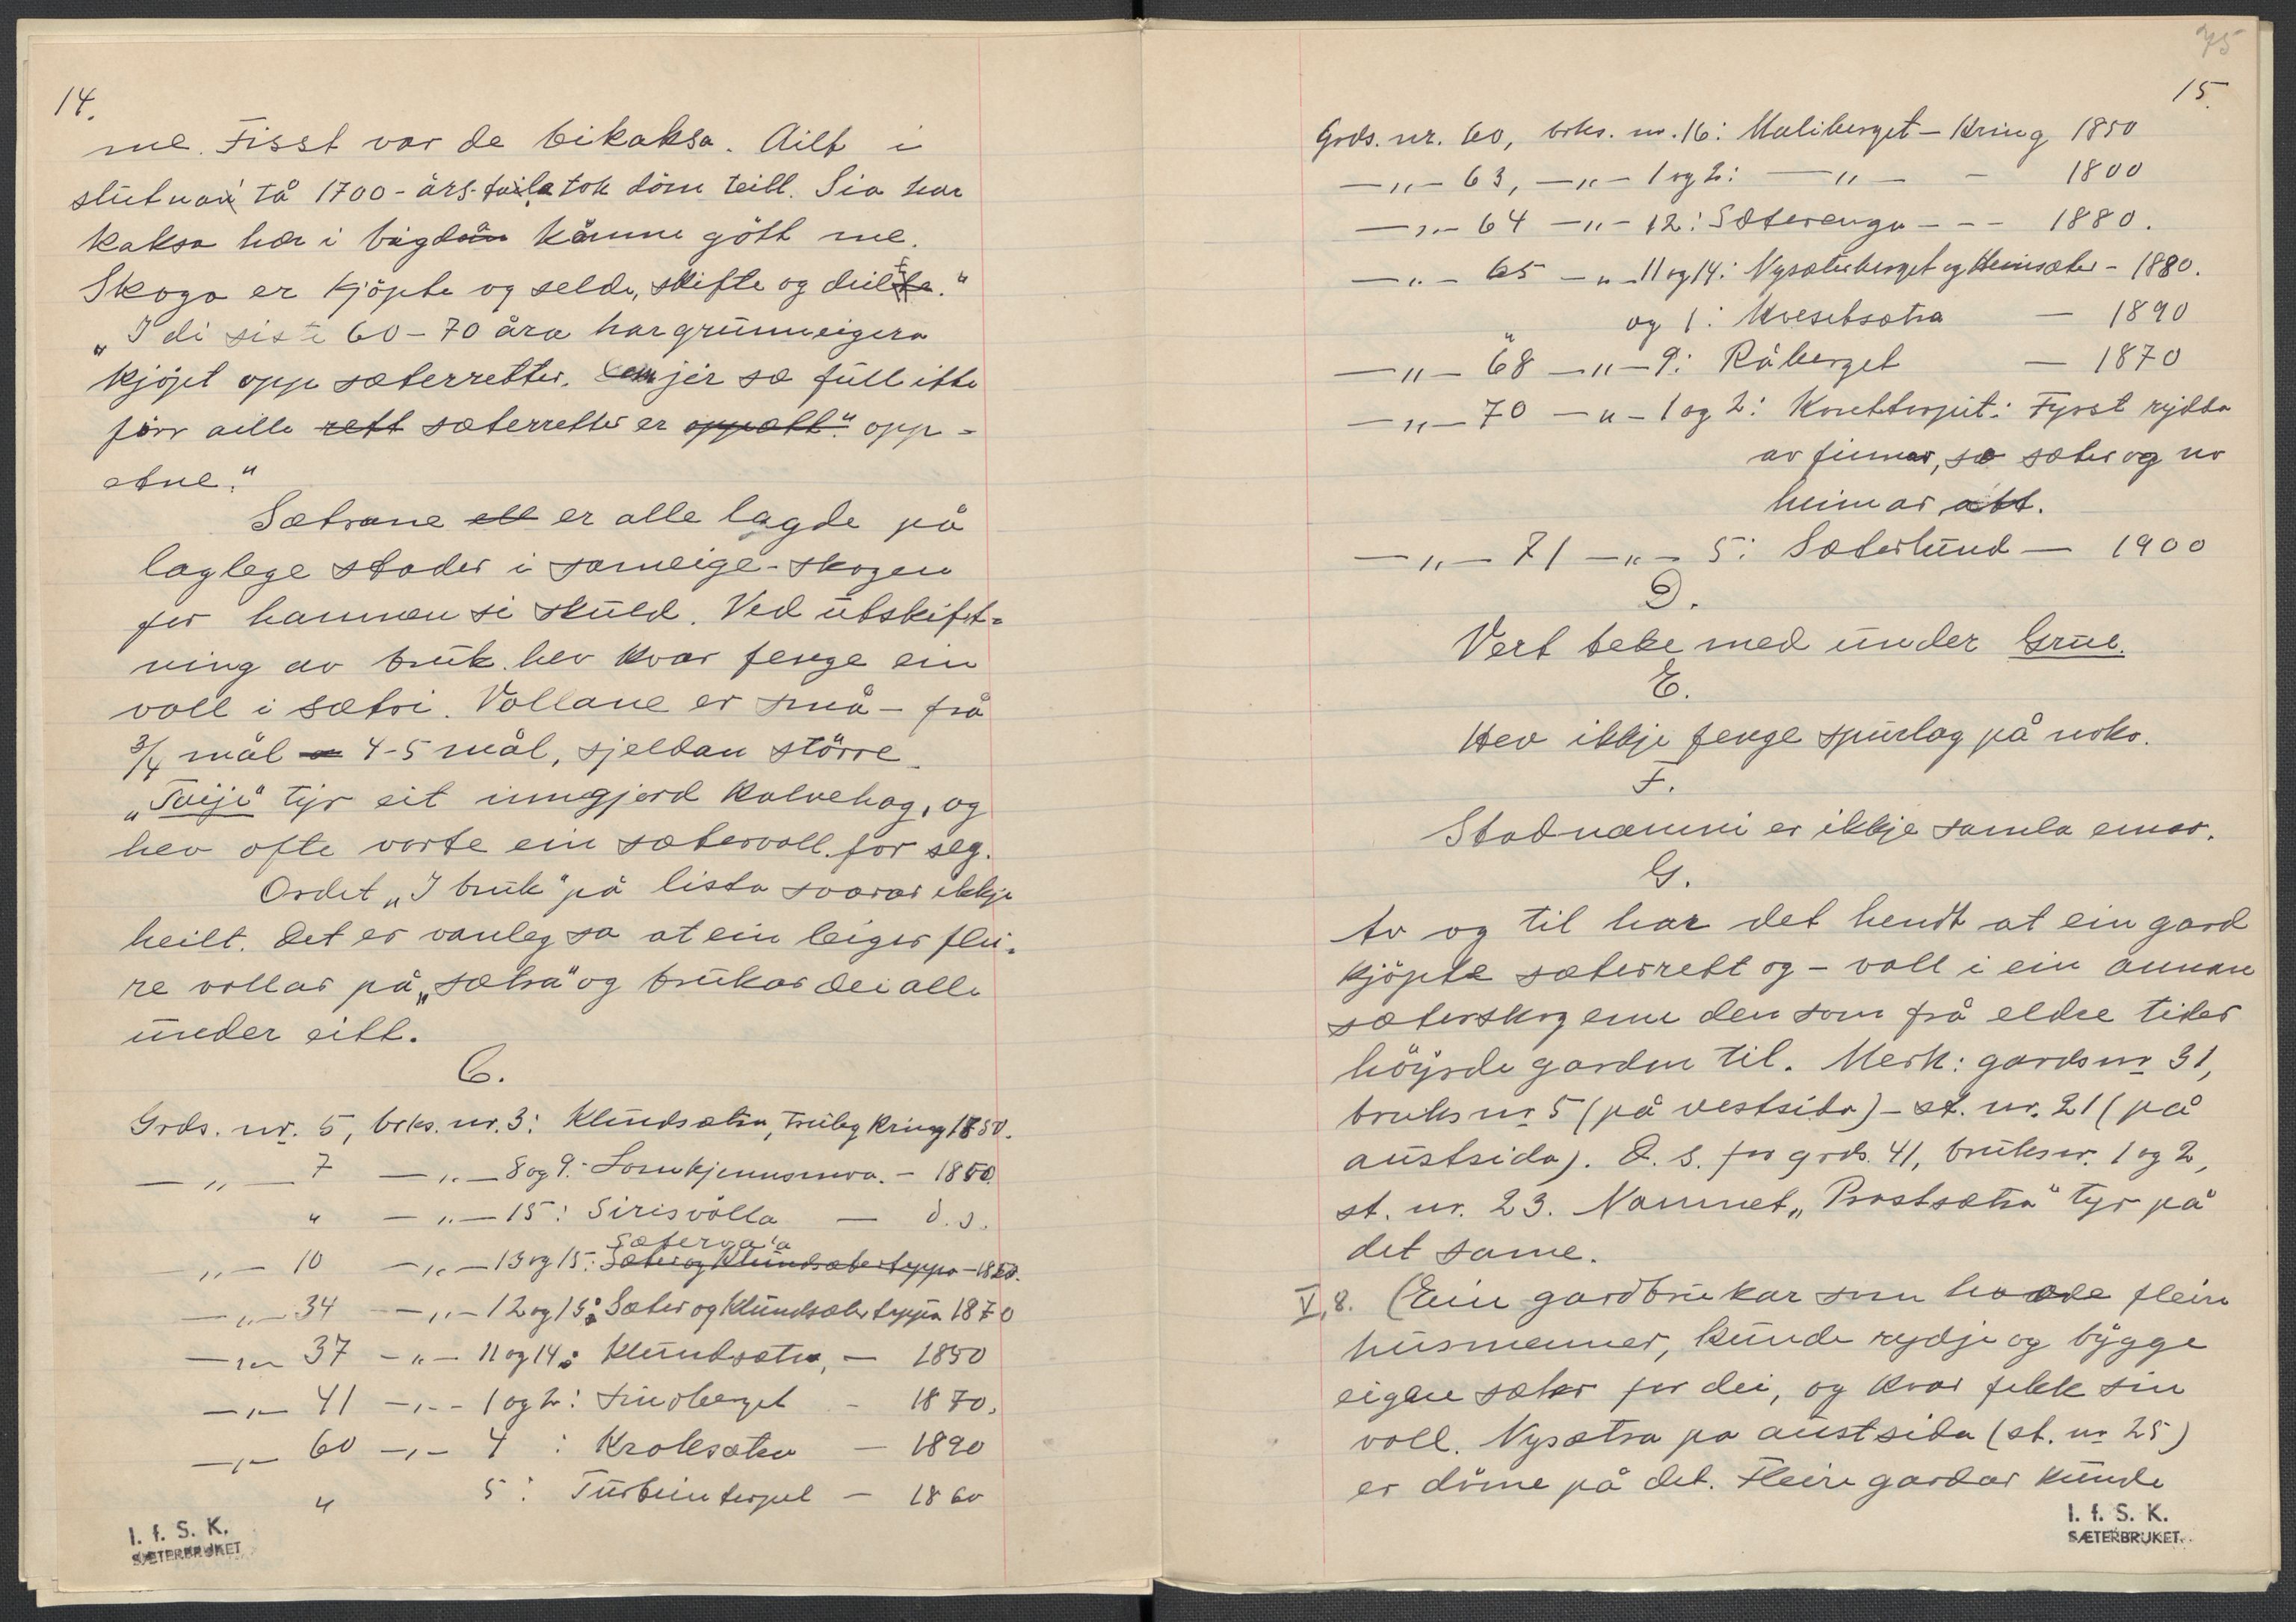 14.
me. Fisst var de bikaksa. Ailt i
slutnan tå 1700-års-taila tok döm teill. Sia har
kaksa hær i bigdän kåmme gött me.
Skoga er kjöpte og selde, skifte og deilte."
"I di siste 60-70 åra har grunneigera
kjöpt opp sæterretter. jir sæ full itte
förr aille rett sæterretter er oppætt." opp-
ætne."
Sætrane ell er alle lagde på
laglege stader i sameige-skogen
for hamnen si skuld. Ved utskift-
ning av bruk hev kvar fenge ein
voll i sætri. Vollane er små - frå
3/4 mål a 4-5 mål, sjeldan större.
"Tveije" tyr eit inngjerd kalvehag, og
hev ofte vorte ein sætervoll for seg.
Ordet "I bruk" på lista svarar ikkje
heilt. Det er vanleg so at ein leiger flei-
re vollar på "sætra" og brukar dei alle
under eitt.
C.
Grds. nr. 5, brks. nr. 3: Klundsætra, truleg kring 1850.
—"— 7 —"— 8 og 9: Lomkjennsmoa. - 1850.
" —"— 15: Sirisvölla — d.s.
Sæterva'a
—"— 10 —"— 13 og 15: Sæter og Klundsætertyppa - 1850.
—"— 34 —"— 12 og 15: Sæter og Klundsætertyppa 1870
—"— 37 —"— 11 og 14: Klundsætra, — 1850
—"— 41 —"— 1 og 2: Lindberget - 1870.
—"— 60 —"— 4 : Kroksætra — 1890
" 5: Turbeintorpet — 1860
I. f. S. K.
SÆTERBRUKET
75
15.
Grds. nr. 60, brks. nr. 16: Maliberget - Kring 1850
—"— 63, —"— 1 og 2: —"— - 1800
—"— 64 —"— 12: Sæterenga - - - 1880.
—"— 65 —"— 11 og 14: Nysæterberget og Heimsæter - 1880.
" og 1: Kvesetsætra — 1890
—"— 68 —"— 9: Råberget — 1870
—"— 70 —"— 1 og 2: Kvetterput: Fyrst rydda
av finnar, so sæter og no
heimar att.
—"— 71 —"— 5: Sæterlund — 1900
D.
Vert teke med under Grue.
E.
Hev ikkje fenge spurlag på noko.
F.
Stadnamni er ikkje samla ennо.
G.
Av og til har det hendt at ein gard
kjöpte sæterrett og - voll i ein annan
sæterskog enn den som frå eldre tider
höyrde garden til. Merk: gards nr 31,
bruks nr 5 (på vestsida) - st. nr. 21 (på
austsida). D. s. for grds. 41, bruksnr. 1 og 2,
st. nr. 23. Namnet "Prostsætra" tyr på
det same.
V, 8. (Ein gardbrukar som hadde fleire
husmenner, kunde rydje og bygge
eigen sæter for dei, og kvar fekk sin
voll. Nysætra på austsida (st. nr 25)
er döme på det. Fleire gardar kunde
I. f. S. K.
SÆTERBRUKET.